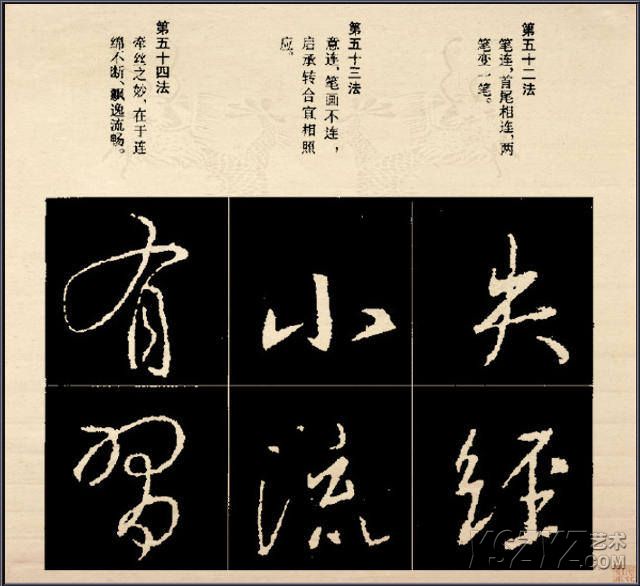 第五十二法
笔连,首尾相连,两
笔变一笔。
第五十三法
意连,笔画不连,
启承转合宜相照
应。
第五十四法
牵丝之妙,在于连
绵不断、飘逸流畅。
失
小
有
经
流
習
YSZYZ艺术
.com